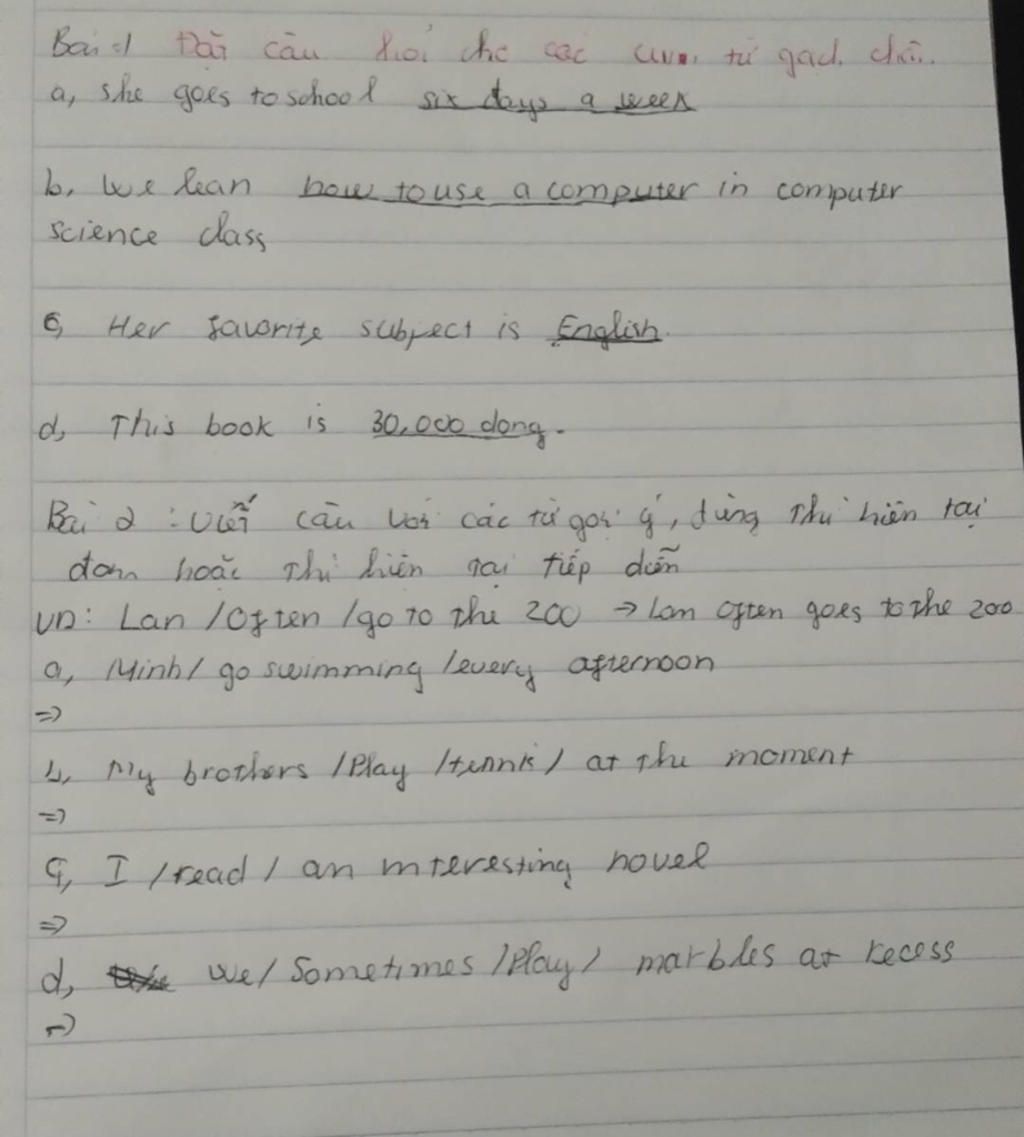 Bài 1 Đặt câu hỏi cho các cụm từ gạch chân.
a, she goes to school six days a week
b, we lean how to use a computer in computer
science class
c, Her favorite subject is English.
d, This book is 30,000 dong.
Bài 2 : Viết câu với các từ gợi ý, dùng thì hiện tại
đơn hoặc thì hiện tại tiếp diễn
VD: Lan / Often / go to the zoo → Lan often goes to the zoo
a, Minh / go swimming / every afternoon
=>
b, My brothers / Play / tennis / at the moment
=>
c, I / read / an interesting novel
=>
d, we / Sometimes / Play / marbles at recess
=>